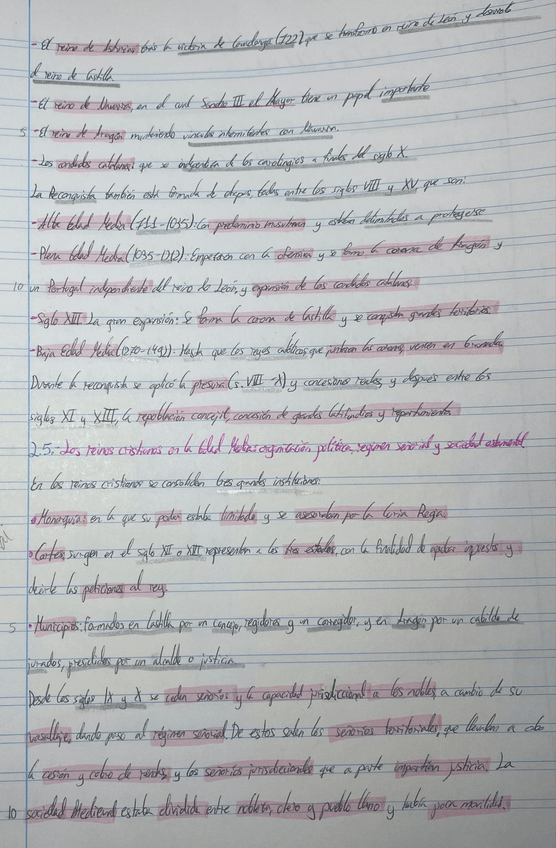 - El reino de Asturias tras la victoria de Covadonga (722) que se transformó en reino de León, y
el reino de Castilla
- El reino de Navarra, en el cual Sancho III el Mayor tiene un papel importante
5 - El reino de Aragón manteniendo vínculos intermitentes con Navarra.
- Los condados catalanes que se independizan de los carolingios a finales del siglo X.
La Reconquista también está formada de etapas, todas entre los siglos VIII y XV que son:
- Alta Edad Media (711-1035): Con predominio musulmán y están delimitados a protegerse
- Plena Edad Media (1035-1212): Empezaron con la ofensiva y se formó la corona de Aragón y
10 un Portugal independiente del reino de León, y expansión de los condados catalanes
- Siglo XIII La gran expansión: Se forma la corona de Castilla y se conquista grandes territorios
- Baja Edad Media (1270-1492): Hasta que los reyes católicos que juntaron las coronas, vencen en Granada
Durante la reconquista se aplicó la presura (s. VIII-X) y concesiones reales, y después entre los
siglos XI y XIII, la repoblación concejil, concesión de grandes latifundios y repartimientos
2.5.- Los reinos cristianos en la Edad Media: organización política, régimen señorial y sociedad estamental
En los reinos cristianos se consolidan tres grandes instituciones:
• Monarquía: en la que su poder estaba limitado y se asesoraban por la Curia Regia
• Cortes, surgen en el siglo XII o XIII representan a los tres estados, con la finalidad de aprobar impuestos y
decirle las peticiones al rey.
5 • Municipios: formados en Castilla por un concejo, regidores y un corregidor, y en Aragón por un cabildo de
jurados, presididos por un alcalde o justicia
Desde los siglos IX y X se ceden señoríos y la capacidad jurisdiccional a los nobles a cambio de su
vasallaje, dando paso al régimen señorial. De estos salen los señoríos territoriales, que llevaban a cabo
la cesión y cobro de rentas, y los señoríos jurisdiccionales que a parte impartían justicia. La
10 sociedad Medieval estaba dividida entre nobleza, clero y pueblo llano y había poca movilidad.